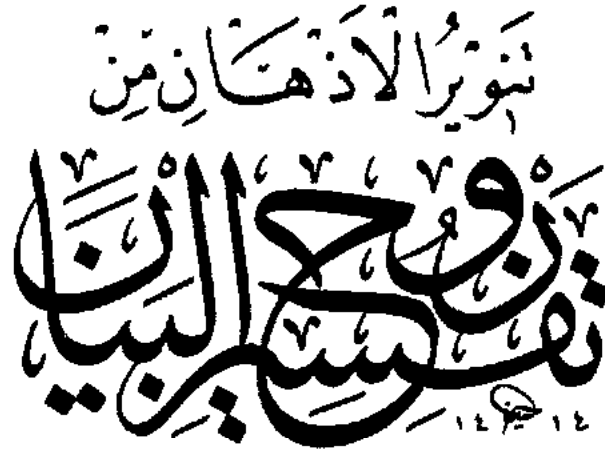 تَنْوِيْرُ الْاَذْهَانِ مِنْ
تفسير روح البيان
١٤ ١٤